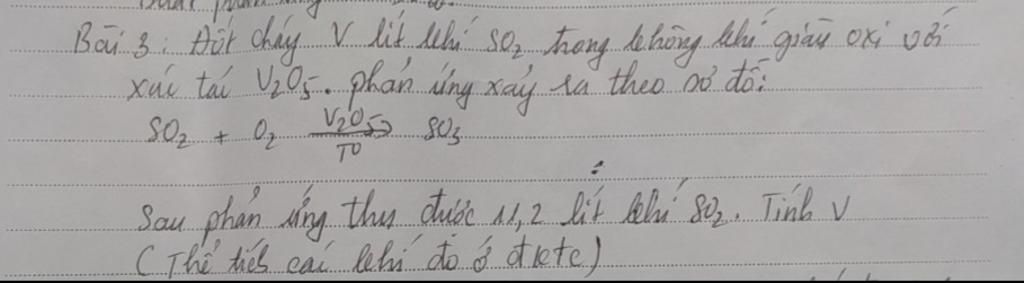 Bài 3: Đốt cháy V lít khí SO2 trong không khí giàu oxi với
xúc tác V2O5. phản ứng xảy ra theo sơ đồ:
SO2 + O2 V2O5→ SO3
T0
Sau phản ứng thu được 11,2 lít khí SO2. Tính V
(Thể tích các khí đo ở đktc)